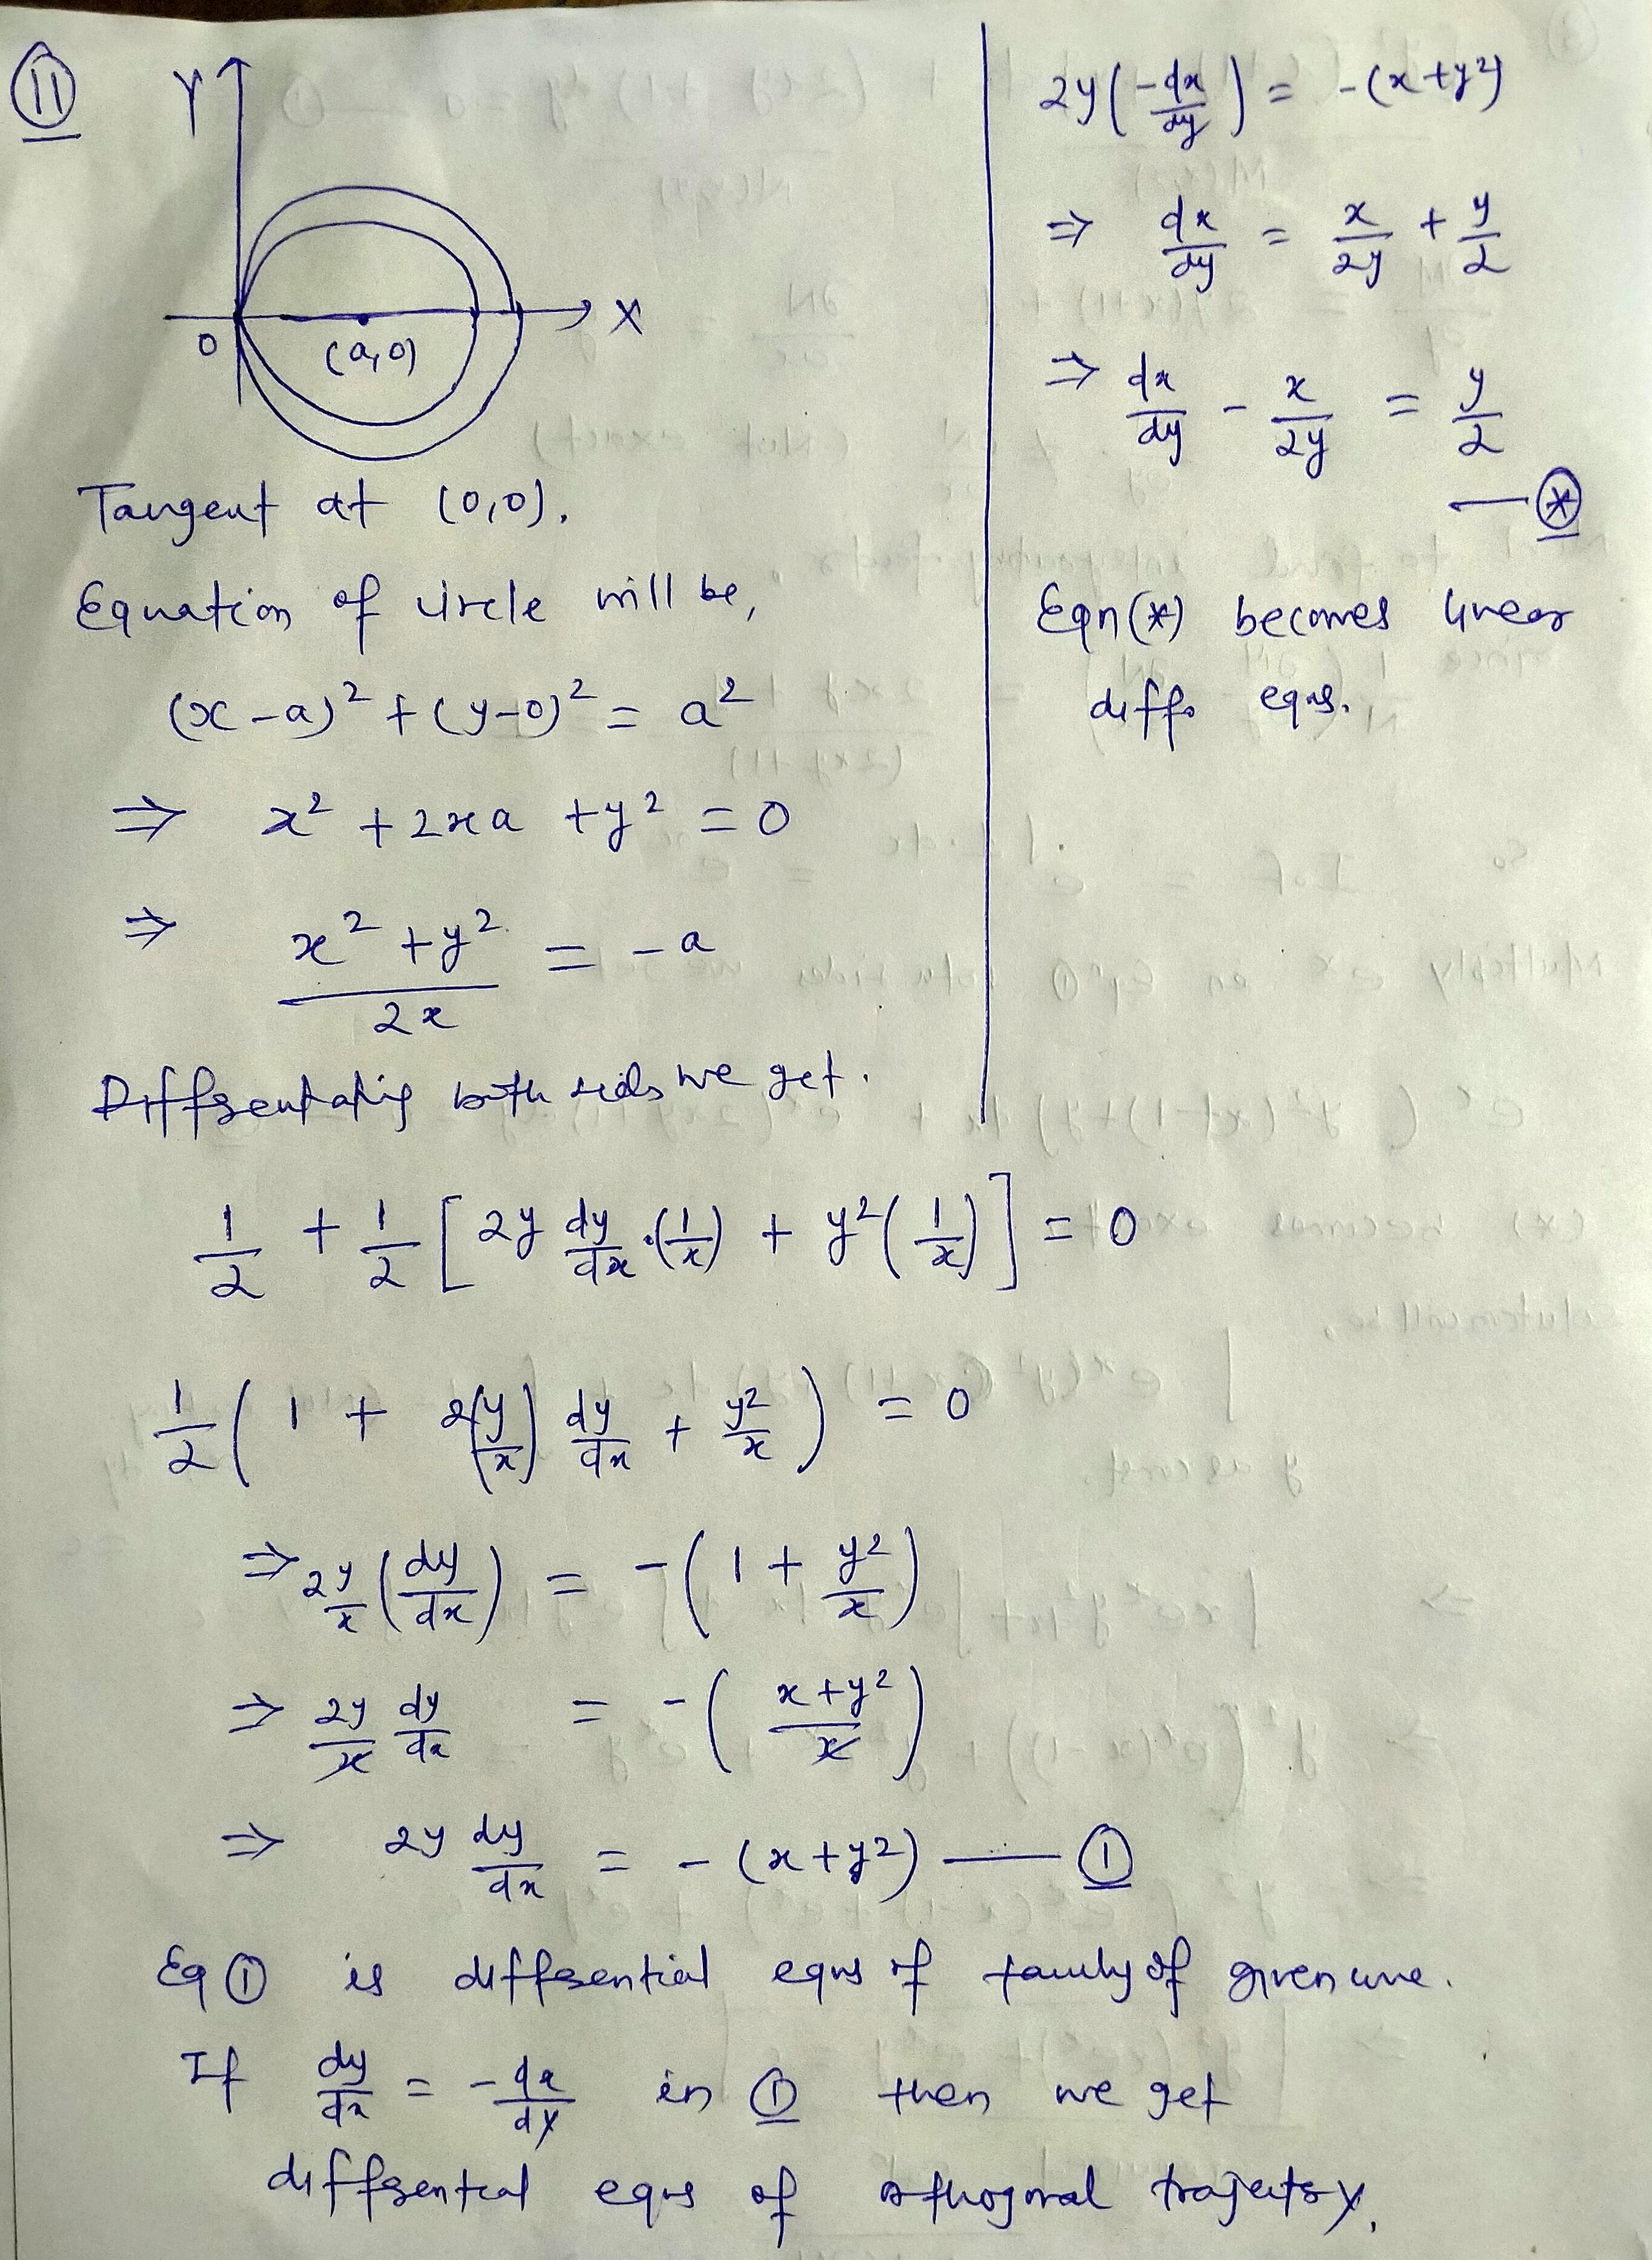 11
Y
X
0
(a,0)
Tangent at (0,0).
Equation of circle will be,
(x-a)² + (y-0)² = a²
⇒ x² + 2xa + y² = 0
⇒ (x² + y²)/2x = -a
Differentating both sids we get.
1/2 + 1/2 [ 2y dy/dx · (1/x) + y² (1/x) ] = 0
1/2 ( 1 + 2(y/x) dy/dx + y²/x ) = 0
⇒ 2y/x (dy/dx) = - ( 1 + y²/x )
⇒ 2y/x dy/dx = - ( (x + y²)/x )
⇒ 2y dy/dx = - (x + y²) — ①
Eq ① is differential eqns of family of given curve.
If dy/dx = - dx/dy in ① then we get
differential eqns of orthogonal trajectory.
2y ( -dx/dy ) = - (x + y²)
⇒ dx/dy = x/2y + y/2
⇒ dx/dy - x/2y = y/2
— (*)
Eqn(*) becomes linear
diff. eqns.